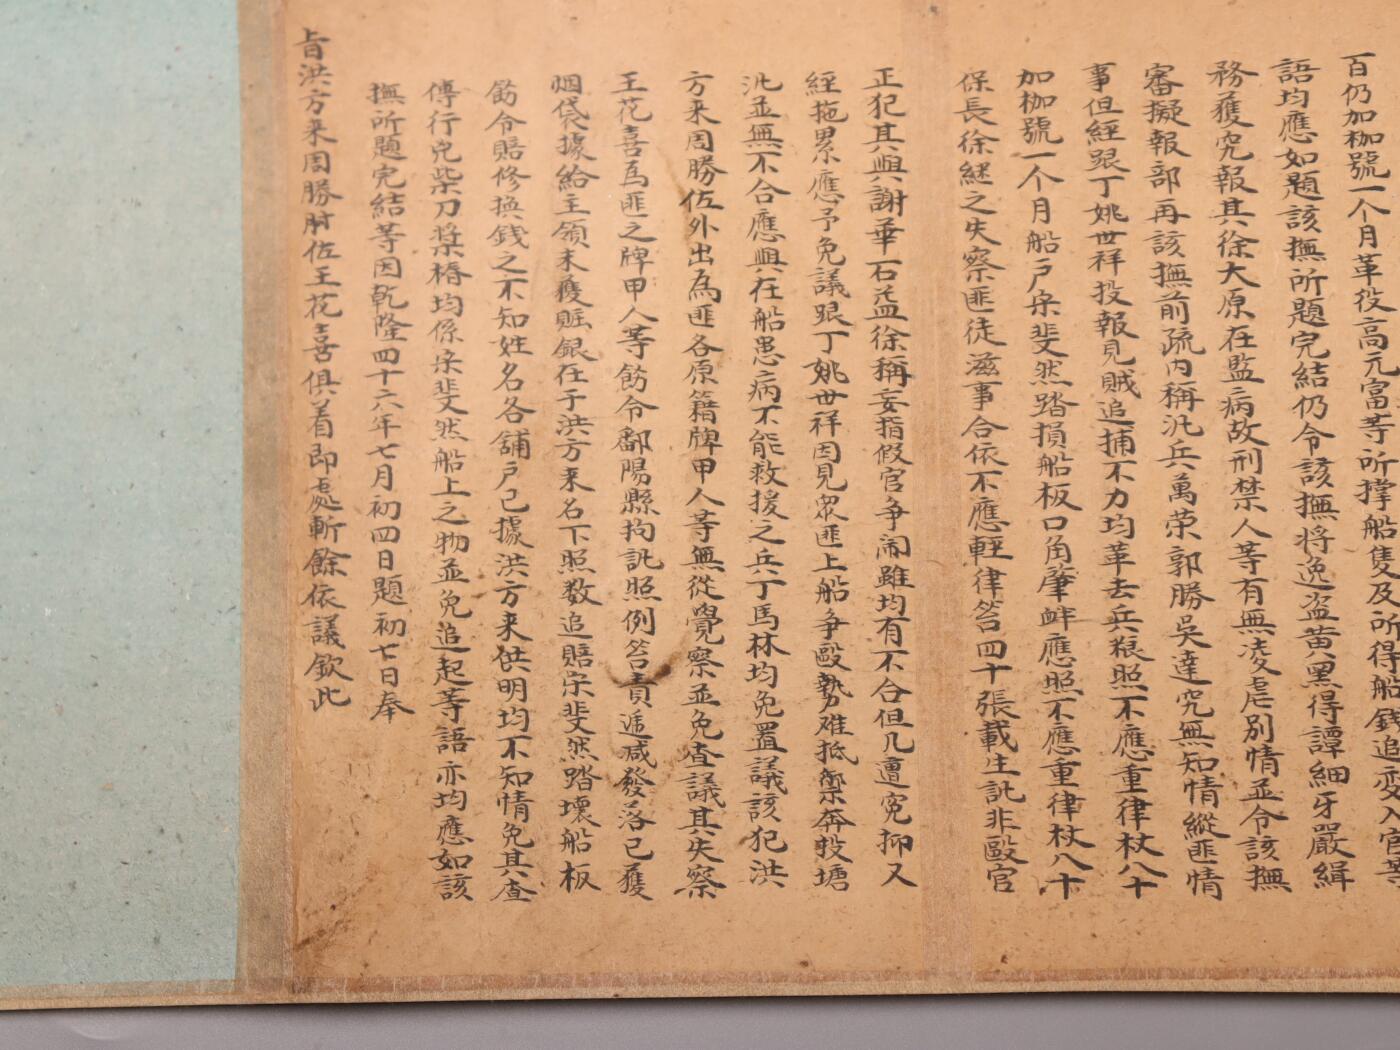 百仍加枷號一个月革役高元富等所撑船隻及所得船錢追变入官等
語均應如題該撫所題完結仍令該撫将逸盗黄黑得譚細牙嚴緝
務獲究報其徐大原在監病故刑禁人等有無凌虐别情並令該撫
審擬報部再該撫前疏内稱汛兵萬荣郭勝吳達究無知情縱匪情
事但經跟丁姚世祥投報見賊追捕不力均革去兵粮照不應重律杖八十
加枷號一个月船户宋斐然踏損船板口角肇衅應照不應重律杖八十
保長徐繼之失察匪徒滋事合依不應輕律笞四十張載生訊非毆官
正犯其與謝華石益徐稱妄指假官争闹雖均有不合但几遭寃抑又
經拖累應予免議跟丁姚世祥因見衆匪上船争毆勢难抵禦奔投塘
汛並無不合應與在船患病不能救援之兵丁馬林均免置議該犯洪
方来周勝佐外出為匪各原籍牌甲人等無從覺察並免查議其失察
王花喜為匪之牌甲人等飭令鄱陽縣拘訊照例笞責逓减發落已獲
烟袋據給主領未獲賍銀在于洪方来名下照数追賠宋斐然踏壞船板
飭令賠修换錢之不知姓名各舖户已據洪方来供明均不知情免其查
傳行兇柴刀槳樁均係宋斐然船上之物並免追起等語亦均應如該
撫所題完結等因乾隆四十六年七月初四日題初七日奉
旨洪方来周勝佐王花喜俱着即處斬餘依議欽此